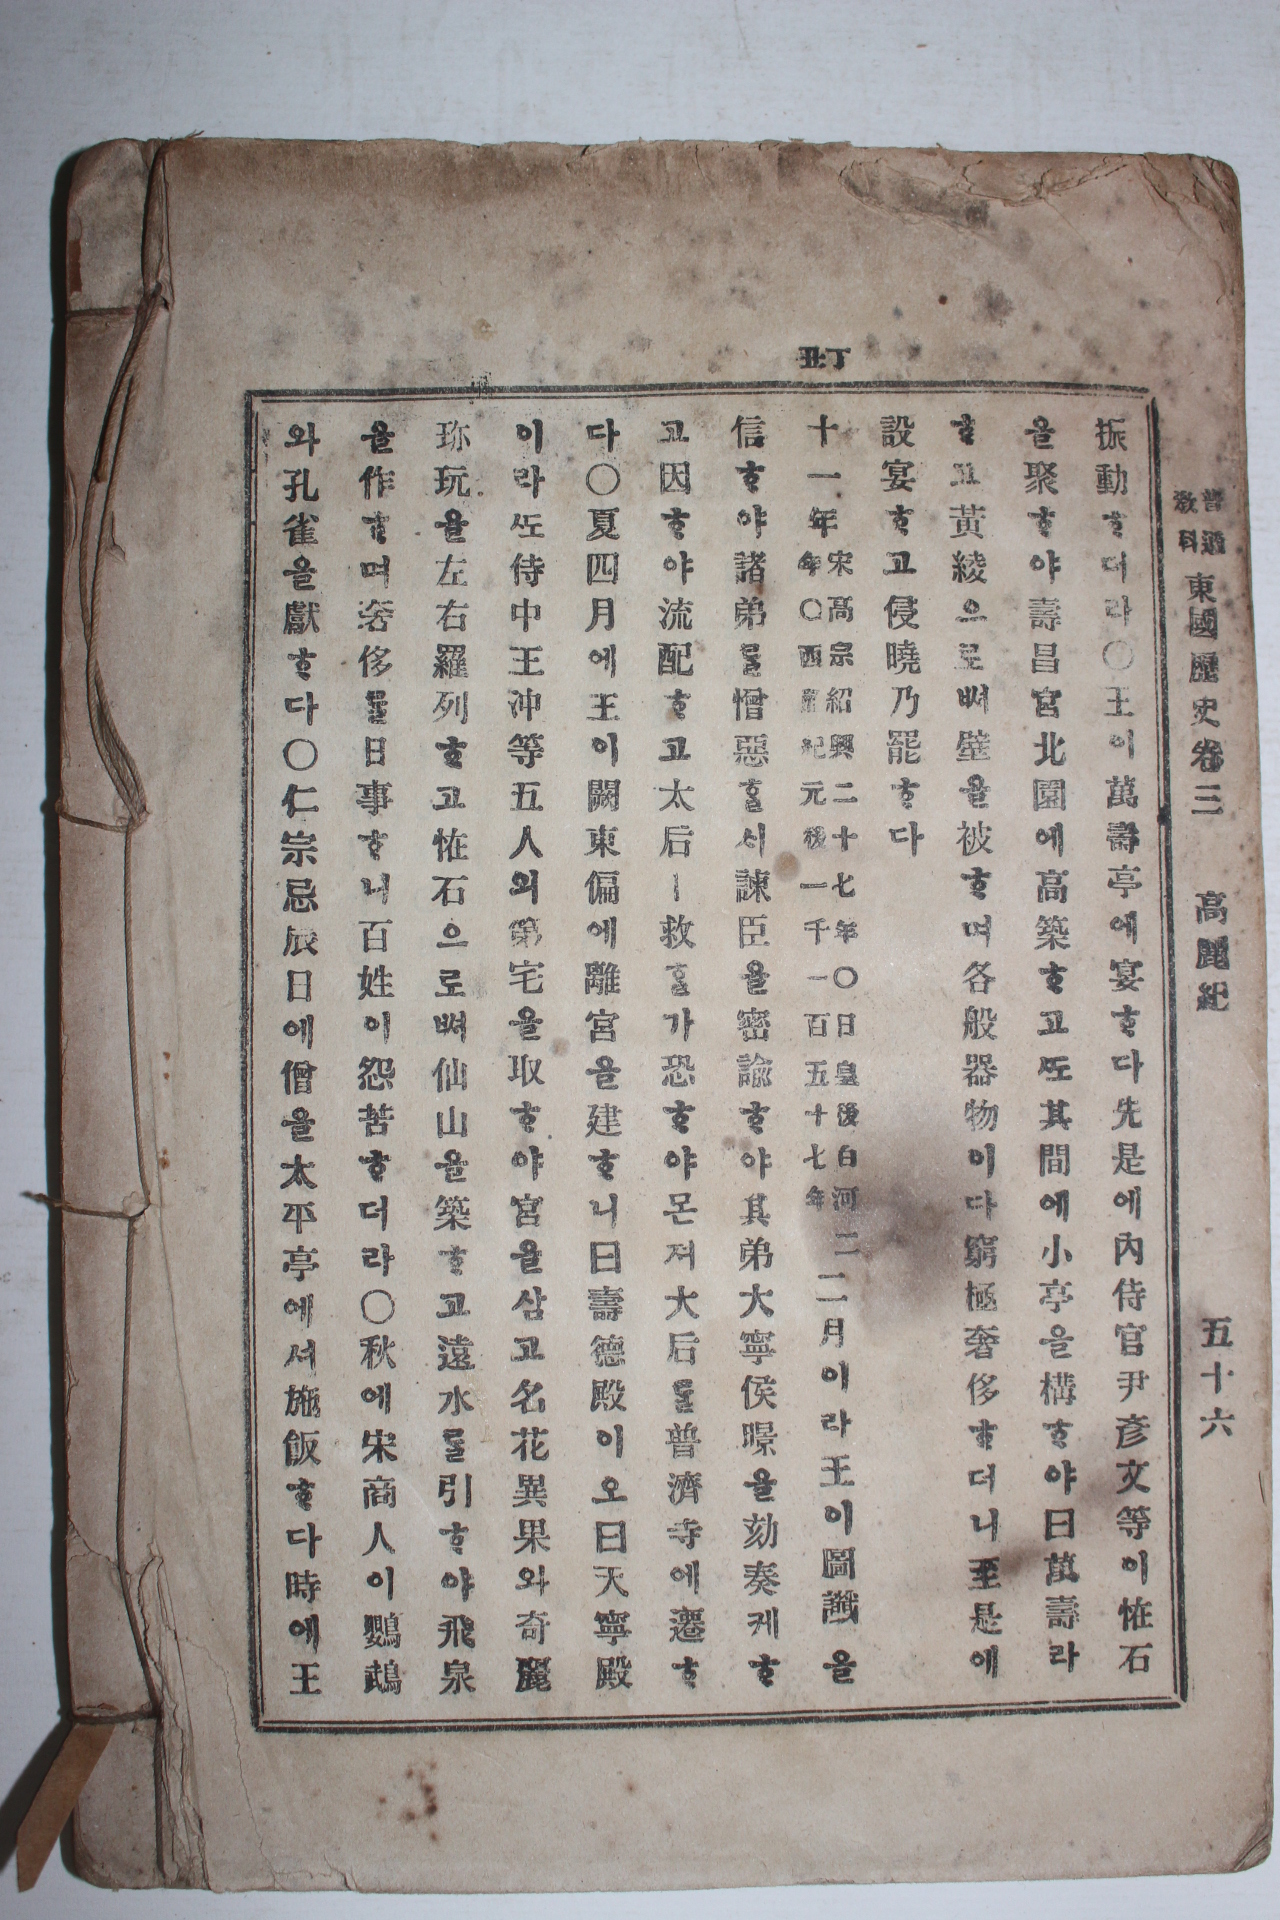 普通
教科
東國歷史卷三　高麗紀　五十六
丁丑
振動ᄒᆞ더라○王이萬壽亭에宴ᄒᆞ다先是에內侍官尹彥文等이恠石
을聚ᄒᆞ야壽昌宮北園에高築ᄒᆞ고ᄯᅩ其間에小亭을構ᄒᆞ야曰萬壽라
ᄒᆞ고黃綾으로ᄡᅥ壁을被ᄒᆞ며各般器物이다窮極奢侈ᄒᆞ더니至是에
設宴ᄒᆞ고侵曉乃罷ᄒᆞ다
十一年
宋高宗紹興二十七年○日皇後白河二
年○西曆紀元後一千一百五十七年
二月이라王이圖讖을
信ᄒᆞ야諸弟를憎惡ᄒᆞᆯ시諫臣을密諭ᄒᆞ야其弟大寧侯暻을劾奏케ᄒᆞ
고因ᄒᆞ야流配ᄒᆞ고太后ㅣ救ᄒᆞᆯ가恐ᄒᆞ야몬져大后를普濟寺에遷ᄒᆞ
다○夏四月에王이闕東偏에離宮을建ᄒᆞ니曰壽德殿이오曰天寧殿
이라ᄯᅩ侍中王冲等五人의第宅을取ᄒᆞ야宮을삼고名花異果와奇麗
珎玩을左右羅列ᄒᆞ고恠石으로ᄡᅥ仙山을築ᄒᆞ고遠水를引ᄒᆞ야飛泉
을作ᄒᆞ며奢侈를日事ᄒᆞ니百姓이怨苦ᄒᆞ더라○秋에宋商人이鸚鵡
와孔雀을獻ᄒᆞ다○仁宗忌辰日에僧을太平亭에셔施飯ᄒᆞ다時에王